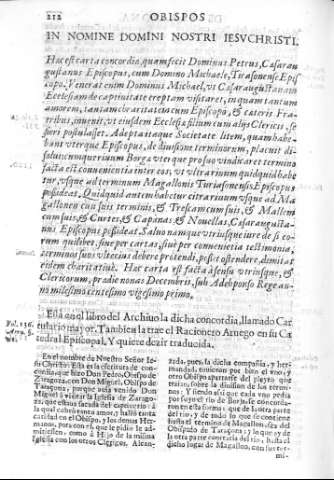 212 OBISPOS
IN NOMINE DOMINI NOSTRI IESVCHRISTI.
Hac est carta concordia, quam fecit Dominus Petrus, Casarau
gustanus Episcopus, cum Domino Michaele, Tirasonense Epis
copo. Venerat enim Dominus Michael, vt Casaraugustanam
Ecclesiam de captiuitate ereptam visitaret, in quam tantum
amorem, tantam charitatem cum Episcopo, & cateris Fra
tribus, inuenit, vt eiusdem Ecclesia filium cum alijs Clericis, se
fieri postulasset. Adepta itaque Societate litem, quam habe-
bant vterque Episcopus, de diuisione terminorum, placuit di-
solui: cumque riuum Borga vterque pro suo vindicaret termino
facta est conuenientia inter eos, vt vltra riuum quidquid habe
tur, vsque ad terminum Magallonis Turiasonensis Episcopus
possideat. Quidquid autem habetur citra riuum vsque ad Ma
gallonem cum suis terminis, & Trescam cum suis, & Mallent
cum suis, & Curtes, & Capanas, & Nouellas, Casaraugusta-
nus Episcopus possideat. Saluo namque vtriusque iure de si eo-
rum quilibet, siue per cartas, siue per conuenientia testimonia,
terminos suos vlterius debere protendi, posset ostendere, dimitat
eidem charitatiuè. Hac carta est facta assensu vtriusque, &
Clericorum, pradie nonas Decembris, sub Adephonso Rege an-
no milesimo centesimo vigesimo primo.
Està en el libro del Archiuo la dicha concordia, llamado Car
tulario mayor. Tambien la trae el Racionero Arnego en su Ca
tedral Episcopal, Y quiere dezir traducida.
Fol. 136.
En el nombre de Nuestro Señor Ie-
sv Christo. Esta es la escritura de con-
cordia que hizo Don Pedro, Obispo de
Zaragoça, con Don Miguel, Obispo de
Taraçona, porque auia venido Don
Miguel à visitar la Iglesia de Zarago-
za, que estaua sacada del captiuerio: à
la qual cobrò tanto amor, y hallò tanta
caridad en el Obispo, y los demas Her-
manos, para con èl, que le pidiò le ad-
mitiessen, como à Hijo de la misma
Iglesia con los otros Clerigos. Alcan-
zada, pues, la dicha compañia, y her-
mandad, conuienen que
otro Obispo apartarse del pleyto que
traìan, sobre la diuision de los termi-
nos: Y siendo assi que cada vno pedia
por suyo el rio de Borja, se concorda-
ron en esta forma: que de la otra parte
del rio, y de todo lo que se contiene
hasta el termino de Magallon, sea del
Obispado de Taraçona: y lo que ay de
la otra parte contraria del rio, hasta el
dicho lugar de Magallon, con sus ter-
mi-